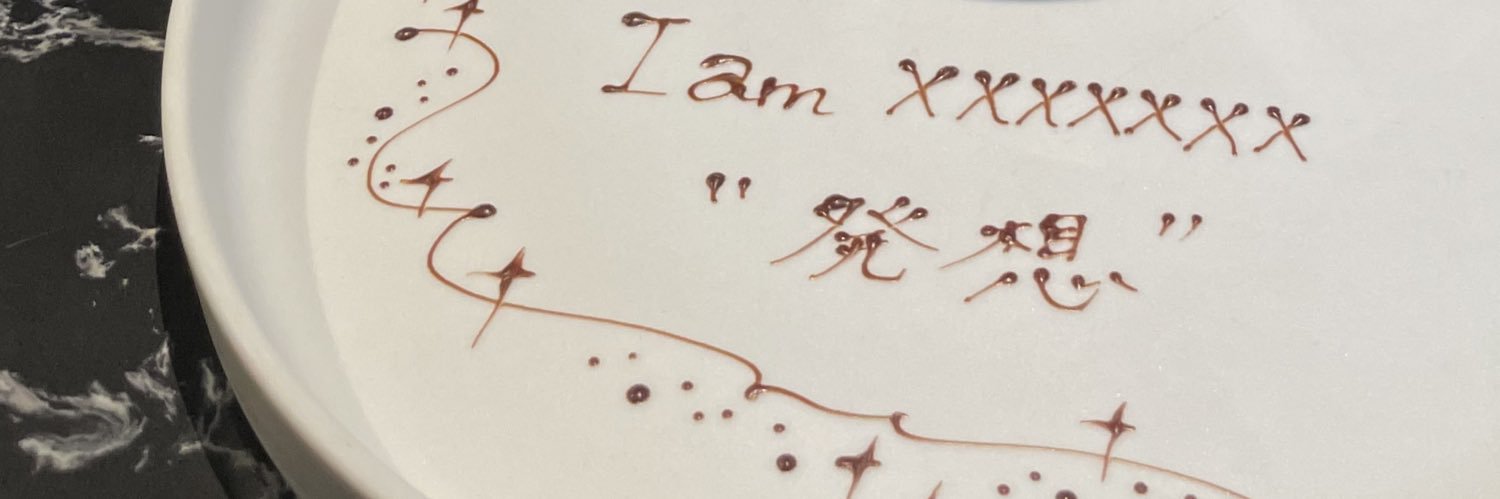 I am xxxxxxx
"発想"